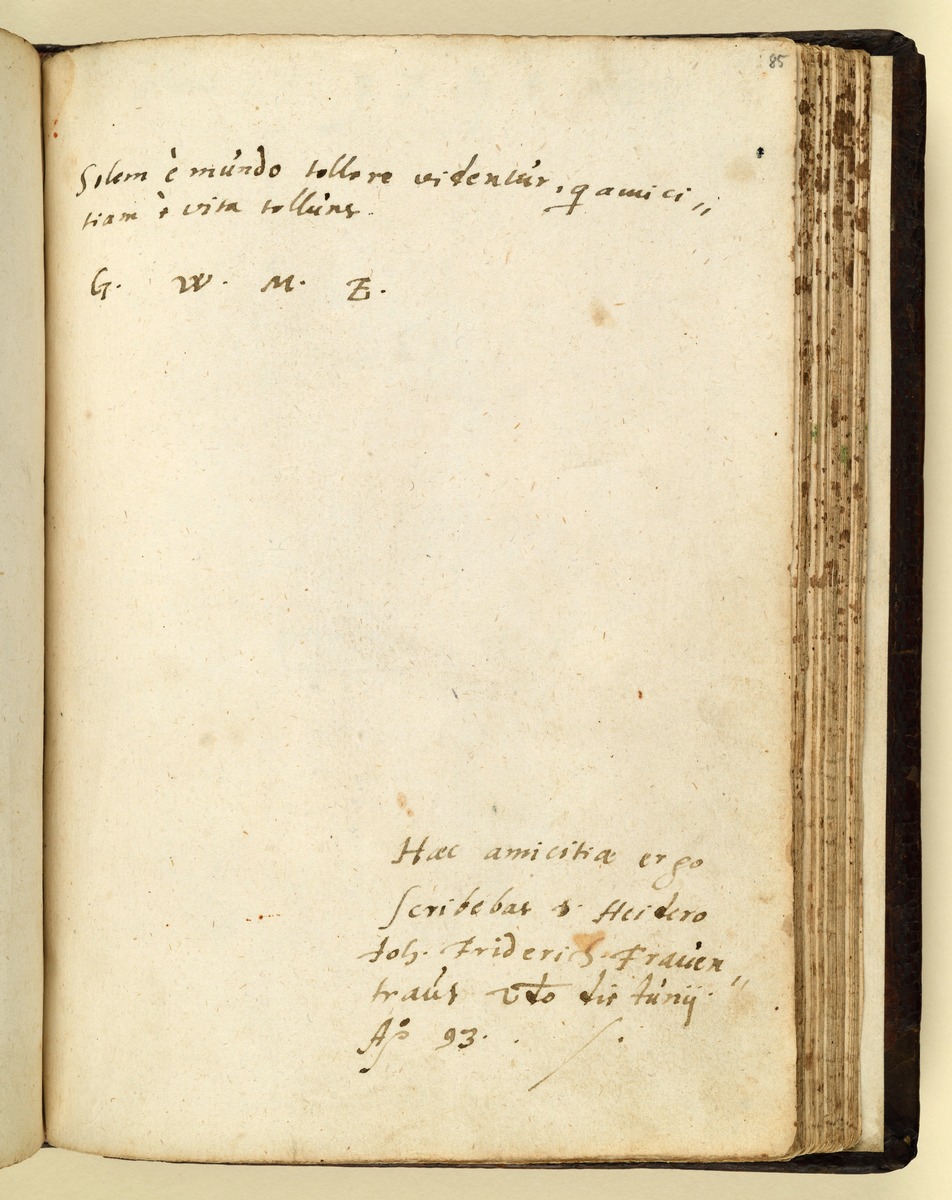 85
Solem è mundo tollere videntur, q amici„
tiam è vita tollunt.
G. W. M. E.
Hæc amicitiæ ergo
scribebat Heidero
Joh. Friderich Frauen„
traut die Junij.
Aō 93.